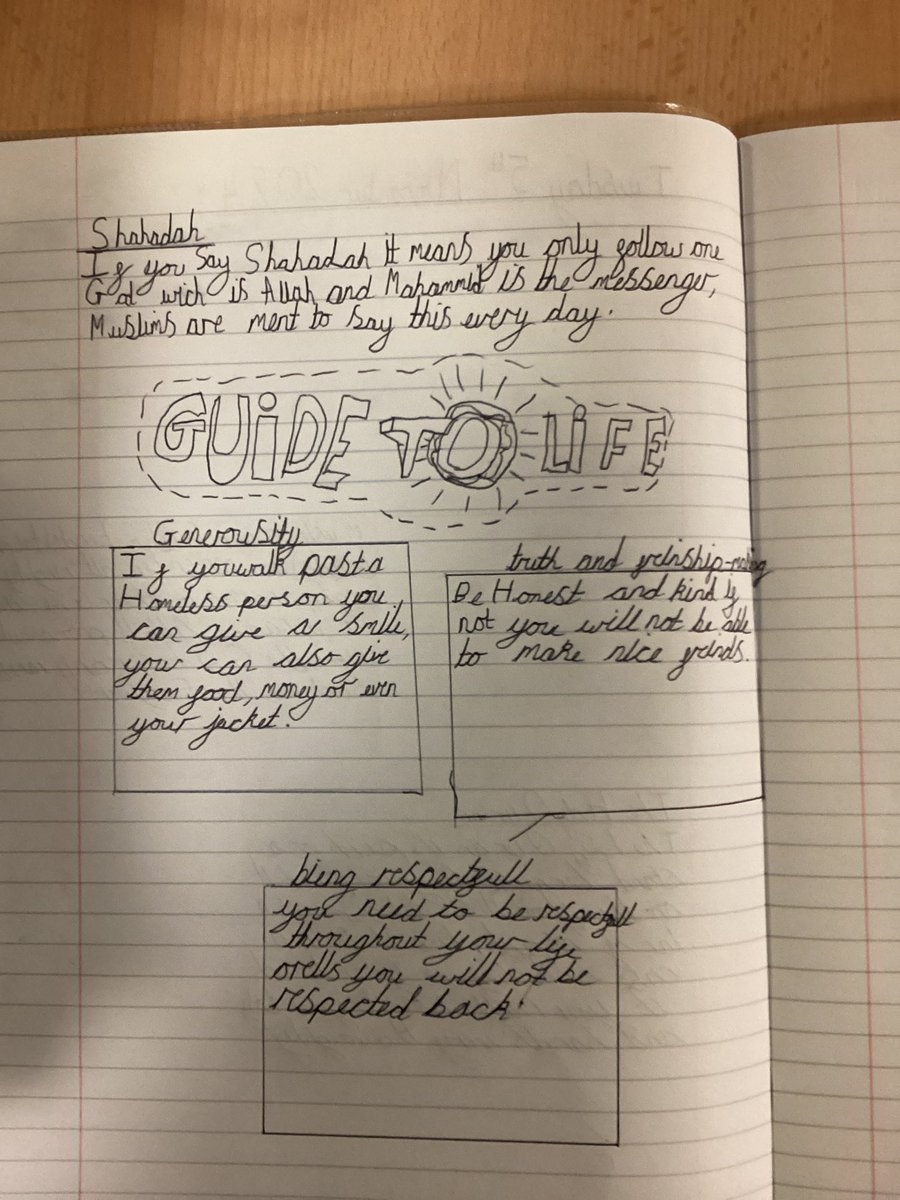 Shahadah
If you Say Shahadah it means you only follow one
God wich is Allah and Mahammid is the messenger,
Muslims are ment to say this every day.
GUiDE TO LiFE
Generousity
If you walk past a
Homeless person you
can give a smile,
your can also give
them food, money or even
your jacket.
truth and freinship-making
Be Honest and kind if
not you will not be able
to make nice freinds.
bieng respectfull
you need to be respectfull
throughout your life
orells you will not be
respected back.